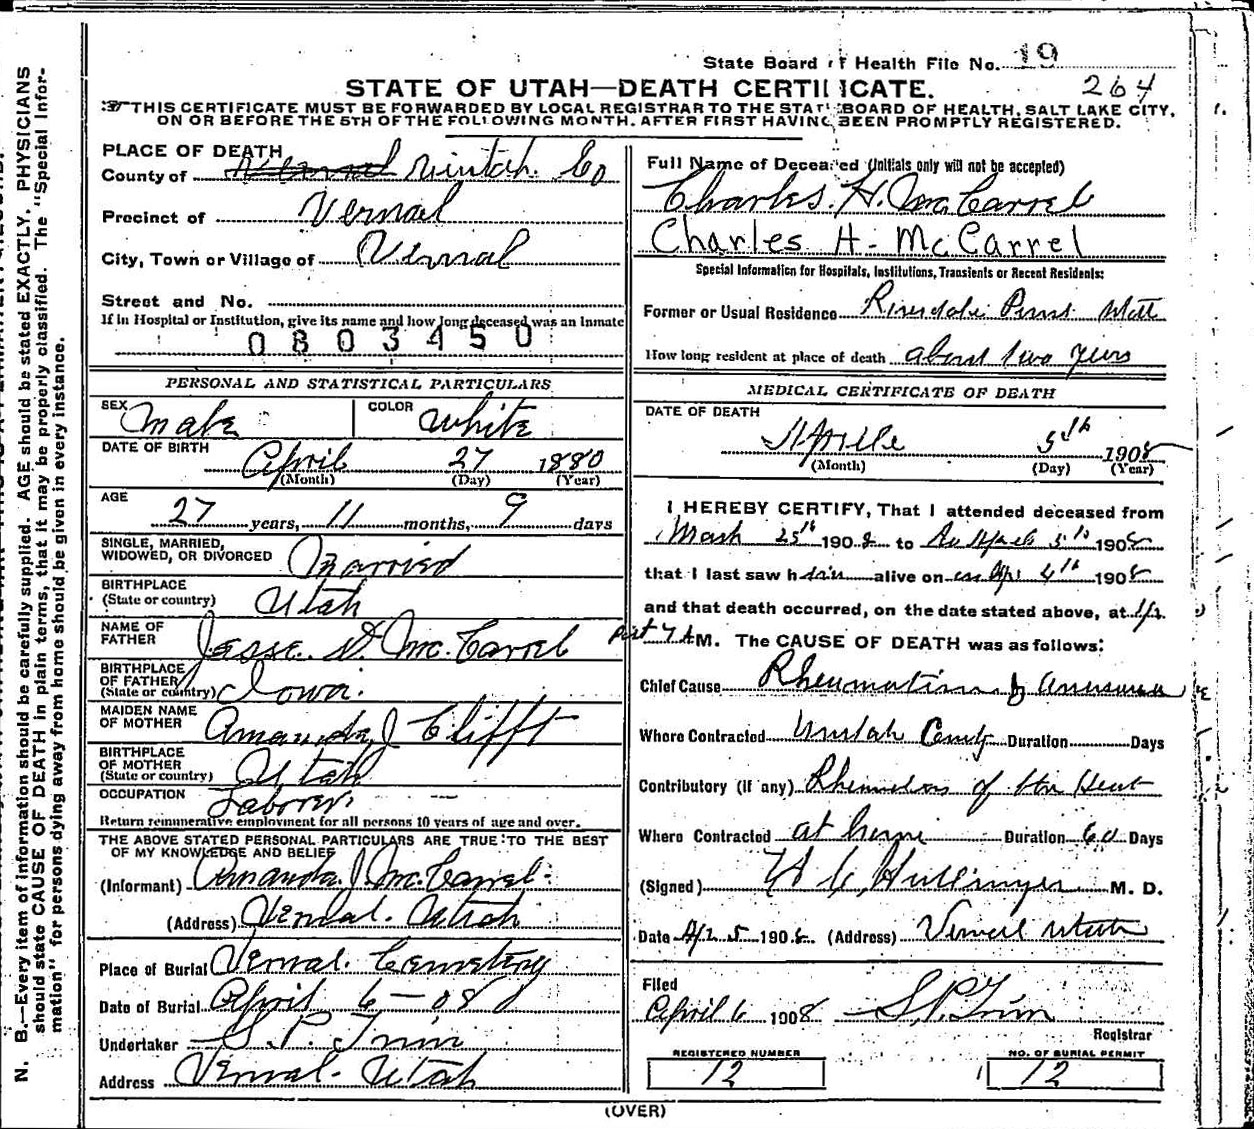 State Board of Health File No. 19
264
STATE OF UTAH—DEATH CERTIFICATE.
THIS CERTIFICATE MUST BE FORWARDED BY LOCAL REGISTRAR TO THE STATE BOARD OF HEALTH, SALT LAKE CITY,
ON OR BEFORE THE 5TH OF THE FOLLOWING MONTH. AFTER FIRST HAVING BEEN PROMPTLY REGISTERED.
N. B.—Every item of information should be carefully supplied. AGE should be stated EXACTLY. PHYSICIANS
should state CAUSE OF DEATH in plain terms, that it may be properly classified. The "Special Infor-
mation" for persons dying away from home should be given in every instance.
PLACE OF DEATH
County of Uintah Co
Precinct of Vernal
City, Town or Village of Vernal
Street and No.
If in Hospital or Institution, give its name and how long deceased was an inmate
0803450
PERSONAL AND STATISTICAL PARTICULARS
SEX Male COLOR White
DATE OF BIRTH April 27 1880
(Month) (Day) (Year)
AGE
27 years, 11 months, 9 days
SINGLE, MARRIED,
WIDOWED, OR DIVORCED Married
BIRTHPLACE
(State or country) Utah
NAME OF
FATHER Jesse D. McCarrel
BIRTHPLACE
OF FATHER
(State or country) Iowa.
MAIDEN NAME
OF MOTHER Amanda J Clifft
BIRTHPLACE
OF MOTHER
(State or country) Utah
OCCUPATION Laborer
Return remunerative employment for all persons 10 years of age and over.
THE ABOVE STATED PERSONAL PARTICULARS ARE TRUE TO THE BEST
OF MY KNOWLEDGE AND BELIEF
(Informant) Amanda J McCarrel
(Address) Vernal. Utah
Place of Burial Vernal. Cemetery
Date of Burial April 6-08
Undertaker S. P. Trim
Address Vernal. Utah
Full Name of Deceased (Initials only will not be accepted)
Charles. H. McCarrel
Charles H. McCarrel
Special Information for Hospitals, Institutions, Transients or Recent Residents:
Former or Usual Residence
How long resident at place of death about two years
MEDICAL CERTIFICATE OF DEATH
DATE OF DEATH
Aprile 5th 1908
(Month) (Day) (Year)
I HEREBY CERTIFY, That I attended deceased from
25th 1908 to 5th 1908
that I last saw him alive on Apr 4th 1908
and that death occurred, on the date stated above, at 1/2
past 7 A M. The CAUSE OF DEATH was as follows:
Chief Cause Rheumatism &
Where Contracted Uintah County Duration Days
Contributory (if any) of the Heart
Where Contracted at home Duration 60 Days
(Signed) H C Hullinger M. D.
Date Apr 5 1908 (Address) Vernal Utah
Filed
April 6 1908 S. P. Trim
Registrar
REGISTERED NUMBER
12
NO. OF BURIAL PERMIT
12
(OVER)